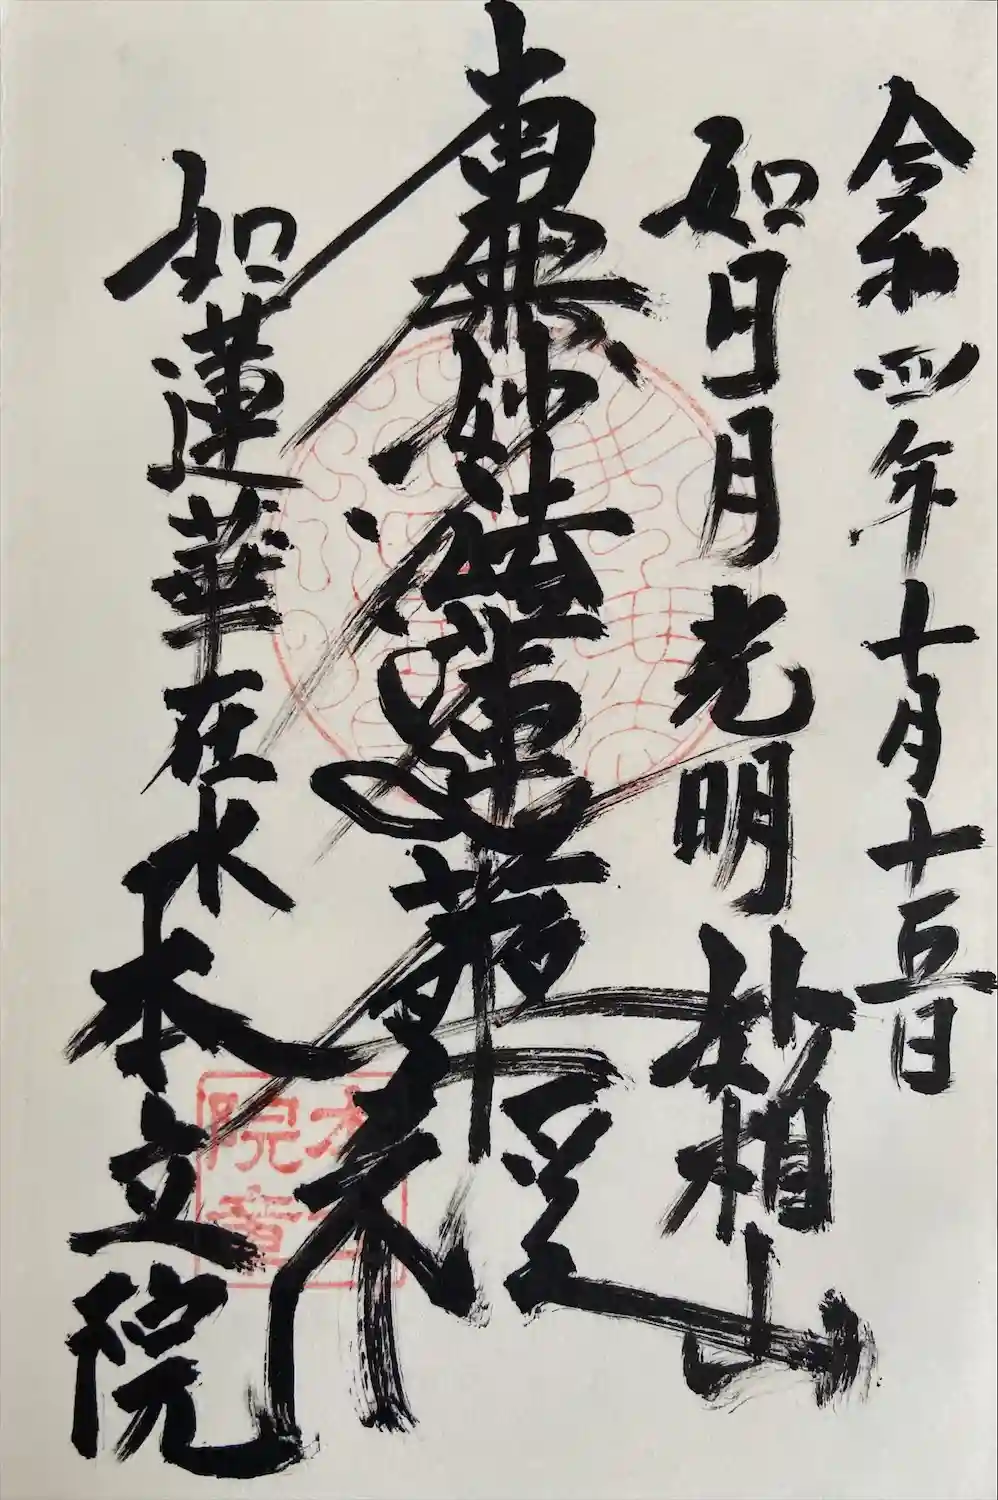 令和四年十月十五日
如日月光明 妙相山
南無妙法蓮華経
如蓮華在水 本立院
本立
院章